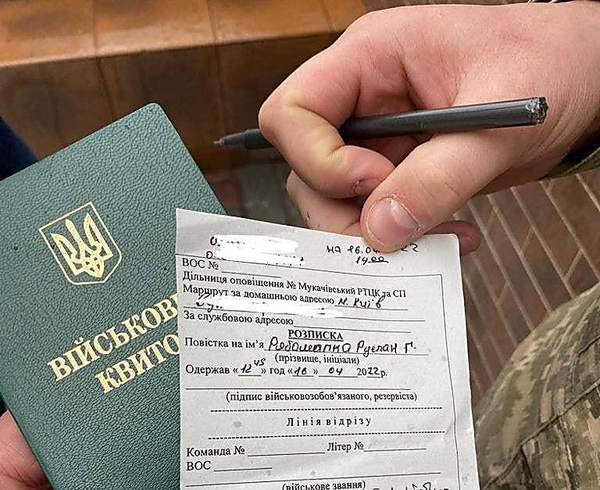 ВІЙСЬКОВ
КВИТО
на 16.04 22
14 00
ВОС №
Дільниця оповіщення № Мукачівський РТЦК та СП
Маршрут за домашньою адресою м. Київ
За службовою адресою
РОЗПИСКА
Повістка на ім'я Руслан Г.
(прізвище, ініціали)
Одержав «12 45» год «16» 04 2022р.
(підпис військовозобов'язаного, резервіста)
Лінія відрізу
Команда № Літер №
ВОС
(військове звання)